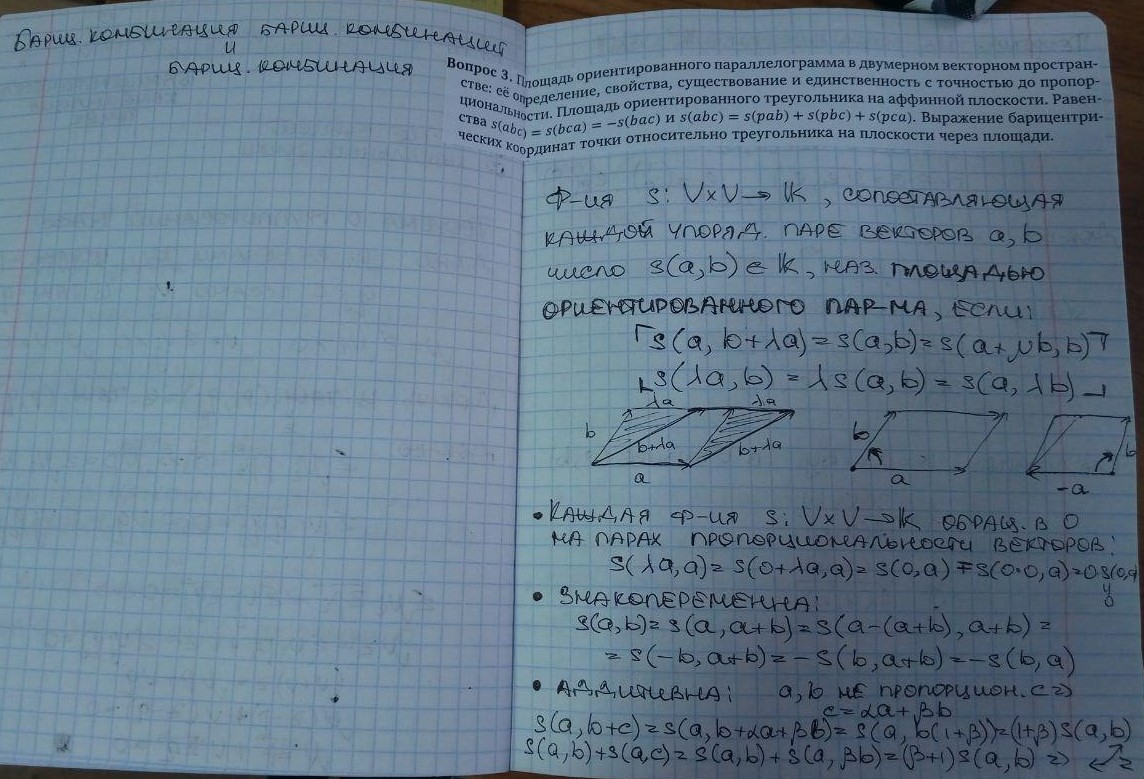 БАРИЦ. КОМБИНАЦИЯ БАРИЦ. КОМБИНАЦИЙ
И
БАРИЦ. КОМБИНАЦИЯ
Вопрос 3. Площадь ориентированного параллелограмма в двумерном векторном простран-
стве: её определение, свойства, существование и единственность с точностью до пропор-
циональности. Площадь ориентированного треугольника на аффинной плоскости. Равен-
ства s(abc) = s(bca) = −s(bac) и s(abc) = s(pab) + s(pbc) + s(pca). Выражение барицентри-
ческих координат точки относительно треугольника на плоскости через площади.
Ф-ИЯ S: V×V → 𝕜, СОПОСТАВЛЯЮЩАЯ
КАЖДОЙ УПОРЯД. ПАРЕ ВЕКТОРОВ a, b
ЧИСЛО S(a,b) ∈ 𝕜, НАЗ. ПЛОЩАДЬЮ
ОРИЕНТИРОВАННОГО ПАР-МА, ЕСЛИ:
S(a, b+λa) = S(a,b) = S(a+μb, b)
S(λa, b) = λS(a,b) = S(a, λb)
λa λa
b b+λa b+λa b b
a a -a
• КАЖДАЯ Ф-ИЯ S: V×V → 𝕜 ОБРАЩ. В 0
НА ПАРАХ ПРОПОРЦИОНАЛЬНОСТИ ВЕКТОРОВ:
S(λa,a) = S(0+λa,a) = S(0,a) = S(0·0,a) = 0·S(0,a)
0
• ЗНАКОПЕРЕМЕННА:
S(a,b) = S(a, a+b) = S(a-(a+b), a+b) =
= S(-b, a+b) = -S(b, a+b) = -S(b,a)
• АДДИТИВНА: a, b НЕ ПРОПОРЦИОН. C =>
c = αa + βb
S(a, b+c) = S(a, b+αa+βb) = S(a, b(1+β)) = (1+β)S(a,b)
S(a,b)+S(a,c) = S(a,b) + S(a, βb) = (β+1)S(a,b) =>